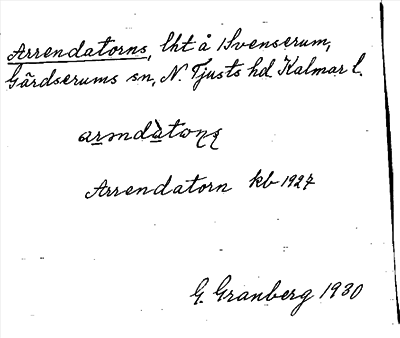 Arrendatorns, lht å 1 Svenserum,
Gärdserums sn, N. Tjusts hd Kalmar l.
Arrendatorn kb 1927
G. Granberg 1930